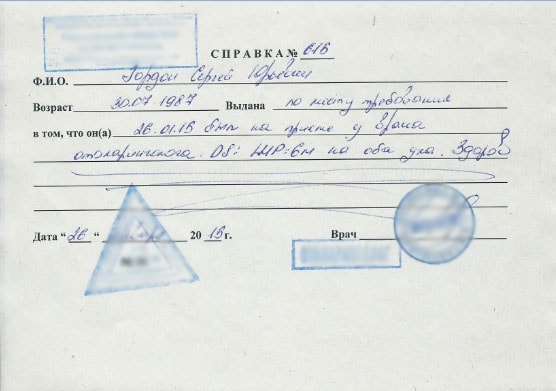 СПРАВКА № 616
Ф.И.О. Гордон Сергей Юрьевич
Возраст 30.07 1987 Выдана по месту требования
в том, что он(а) 26.01.15 был на приеме у врача
отоларинголога. DS: ШР=6м на оба уха. Здоров
Дата "26" 20 15 г. Врач